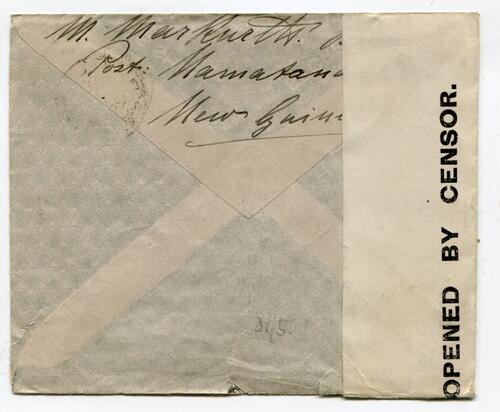 M. Markurth.
Post: Namatana
New Guin
OPENED BY CENSOR.